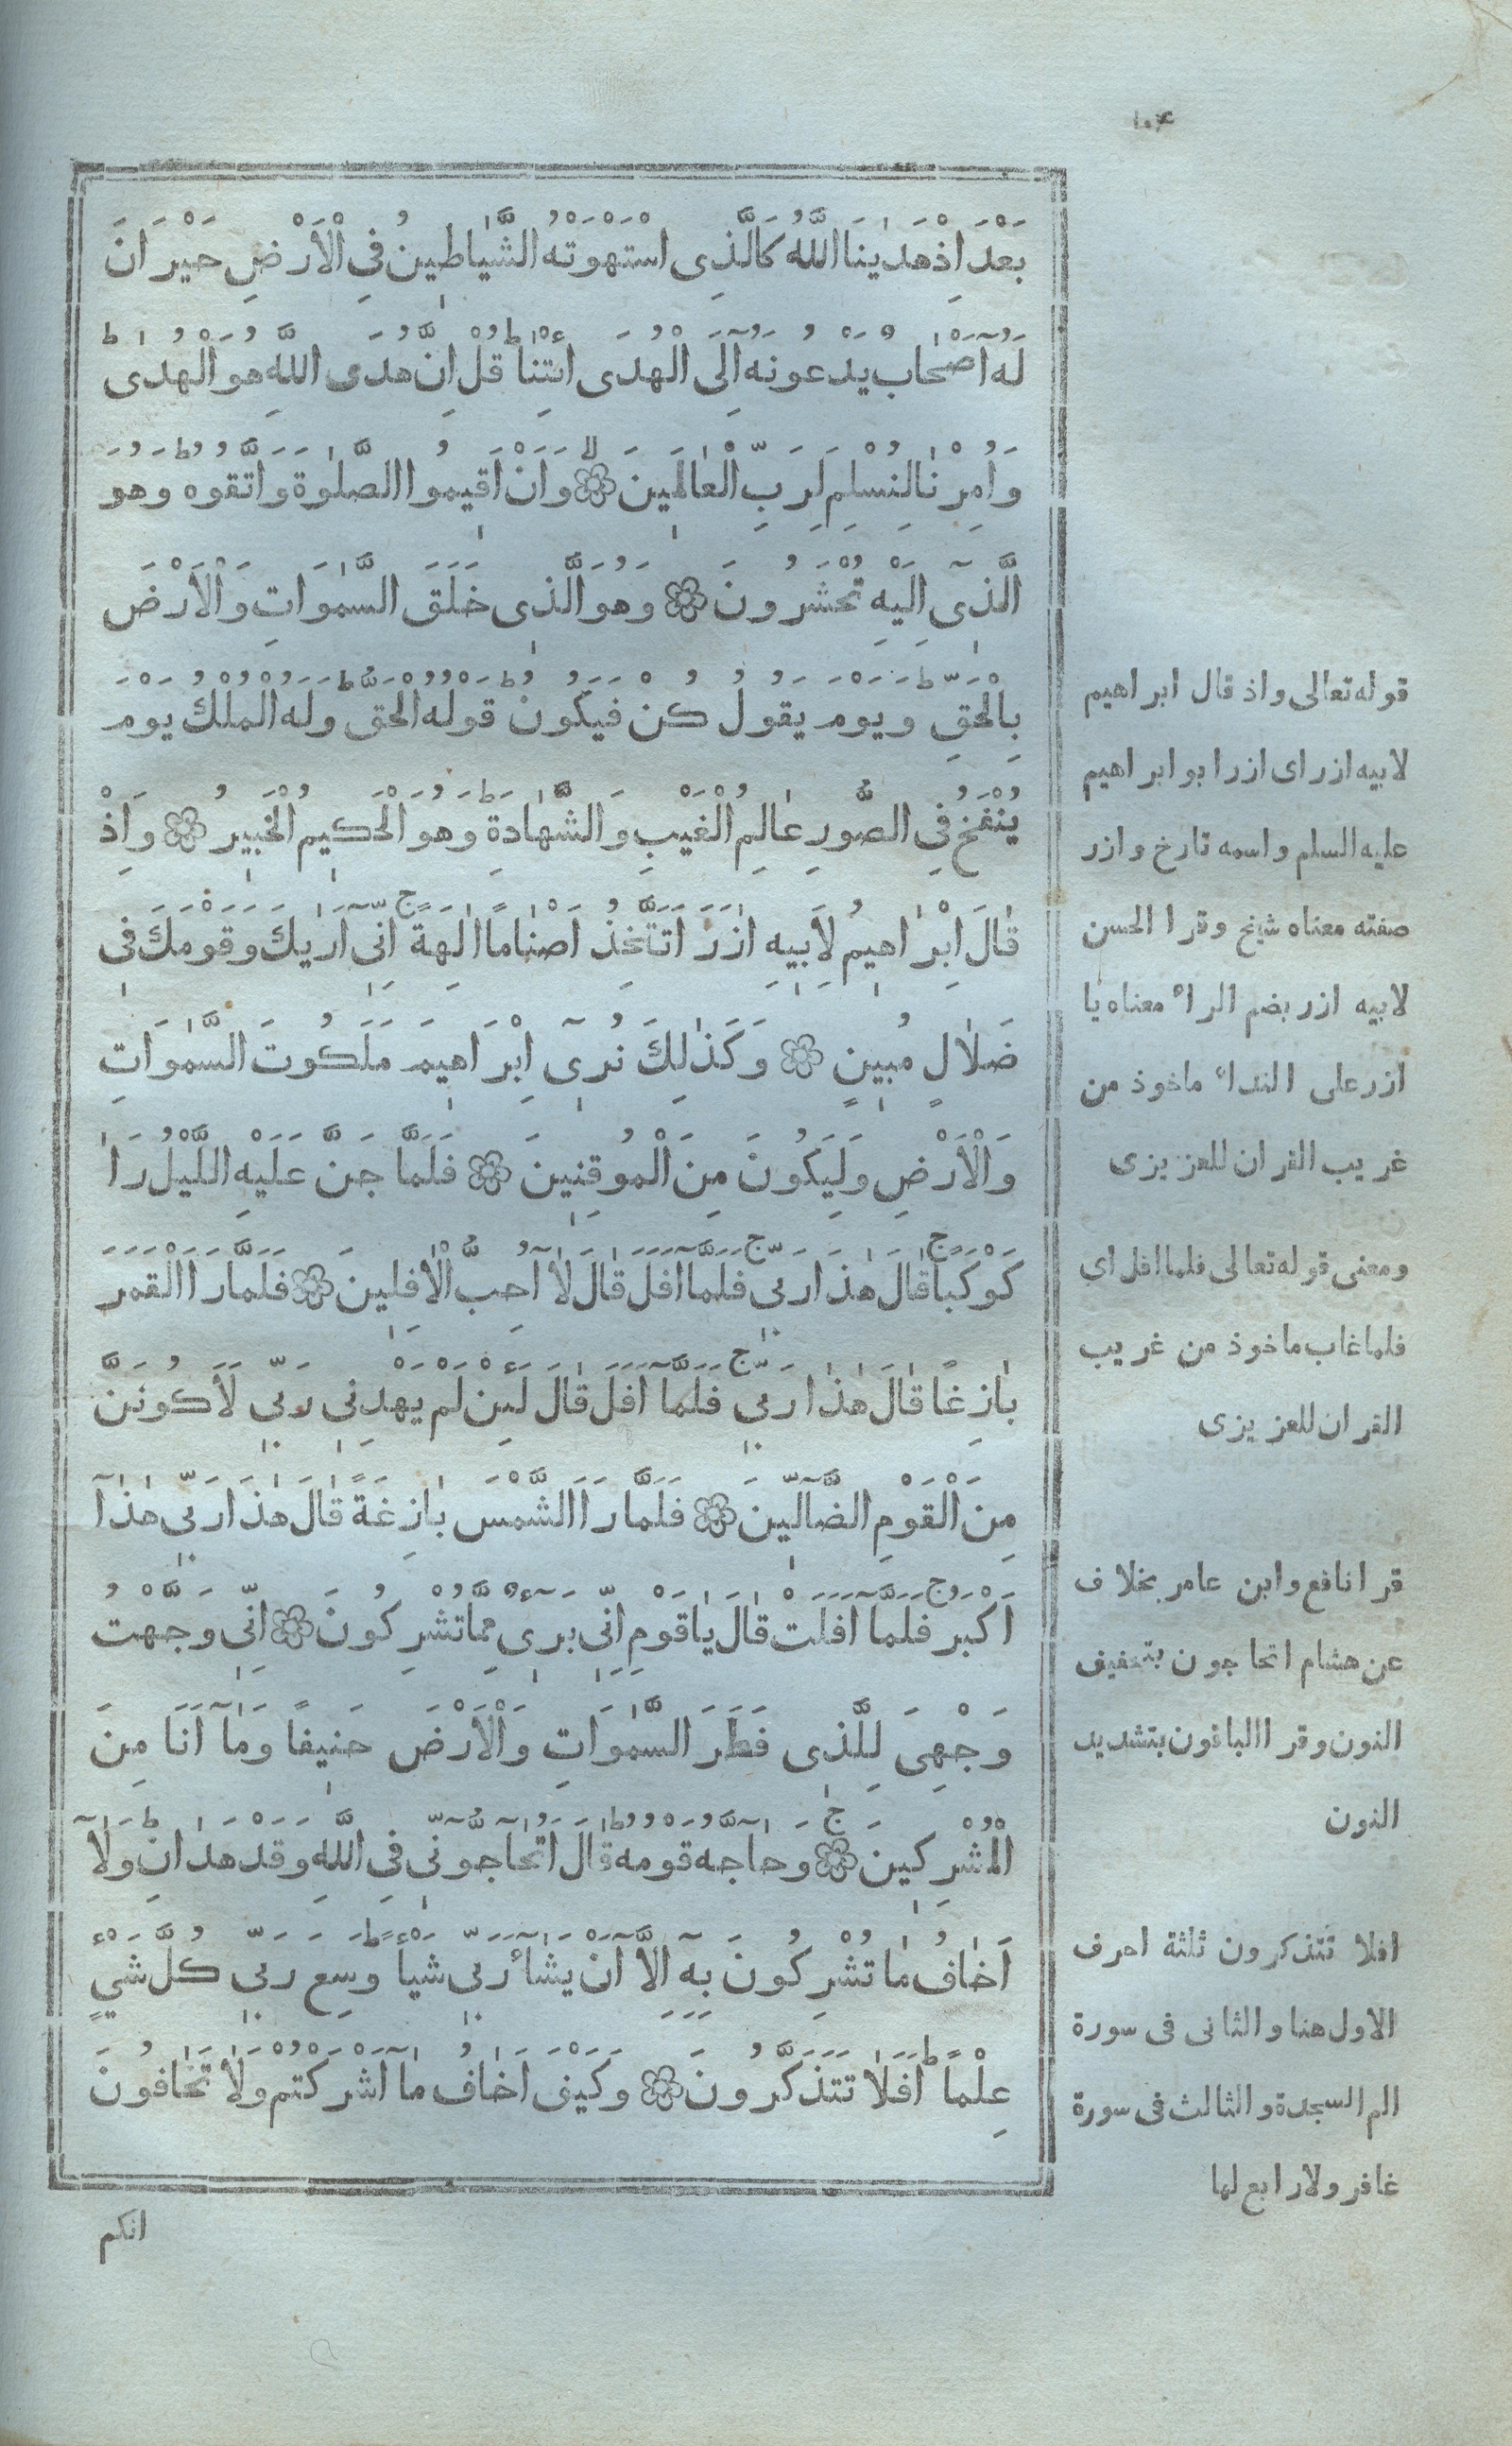 ١٠٤
بَعْدَ اِذْ هَدٰينَا اللَّهُ كَالَّذِى اسْتَهْوَتْهُ الشَّيٰاطِينُ فِى الْاَرْضِ حَيْرَانَ
لَهُٓ اَصْحٰابٌ يَدْعُونَهُٓ اِلَى الْهُدَى ائْتِنٰا ط قُلْ اِنَّ هُدَى اللَّهِ هُوَ الْهُدٰى ط
وَاُمِرْنٰا لِنُسْلِمَ لِرَبِّ الْعٰالَمِينَ لا وَاَنْ اَقِيمُوا الصَّلٰوةَ وَاتَّقُوهُ ط وَهُوَ
الَّذِىٓ اِلَيْهِ تُحْشَرُونَ وَهُوَ الَّذِى خَلَقَ السَّمٰوَاتِ وَالْاَرْضَ
بِالْحَقِّ ط وَيَوْمَ يَقُولُ كُنْ فَيَكُونُ ط قَوْلُهُ الْحَقُّ ط وَلَهُ الْمُلْكُ يَوْمَ
يُنْفَخُ فِى الصُّورِ عٰالِمُ الْغَيْبِ وَالشَّهٰادَةِ ط وَهُوَ الْحَكِيمُ الْخَبِيرُ وَاِذْ
قٰالَ اِبْرٰاهِيمُ لِاَبِيهِ اٰزَرَ اَتَتَّخِذُ اَصْنٰامًا اٰلِهَةً ج اِنِّىٓ اَرٰيكَ وَقَوْمَكَ فِى
ضَلٰالٍ مُبِينٍ وَكَذٰلِكَ نُرِىٓ اِبْرَاهِيمَ مَلَكُوتَ السَّمٰوَاتِ
وَالْاَرْضِ وَلِيَكُونَ مِنَ الْمُوقِنِينَ فَلَمَّا جَنَّ عَلَيْهِ اللَّيْلُ رَاٰ
كَوْكَبًا ج قٰالَ هٰذَا رَبِّى ج فَلَمَّٓا اَفَلَ قٰالَ لٰٓا اُحِبُّ الْاٰفِلِينَ فَلَمَّا رَاَ الْقَمَرَ
بٰازِغًا قٰالَ هٰذٰا رَبِّى ج فَلَمَّٓا اَفَلَ قٰالَ لَئِنْ لَمْ يَهْدِنِى رَبِّى لَاَكُونَنَّ
مِنَ الْقَوْمِ الضَّٓالِّينَ فَلَمَّا رَاَ الشَّمْسَ بٰازِغَةً قٰالَ هٰذَا رَبِّى هٰذٰٓا
اَكْبَرُ ج فَلَمَّٓا اَفَلَتْ قٰالَ يٰاقَوْمِ اِنِّى بَرِىٓءٌ مِمَّا تُشْرِكُونَ اِنِّى وَجَّهْتُ
وَجْهِىَ لِلَّذِى فَطَرَ السَّمٰوَاتِ وَالْاَرْضَ حَنِيفًا وَمٰٓا اَنَا مِنَ
الْمُشْرِكِينَ ج وَحٰٓاجَّهُ قَوْمُهُ ط قٰالَ اَتُحٰٓاجُّٓونِّى فِى اللَّهِ وَقَدْ هَدٰانِ ط وَلٰٓا
اَخٰافُ مٰا تُشْرِكُونَ بِهِٓ اِلَّٓا اَنْ يَشٰٓاءَ رَبِّى شَيْئًا ط وَسِعَ رَبِّى كُلَّ شَىْءٍ
عِلْمًا ط اَفَلٰا تَتَذَكَّرُونَ وَكَيْفَ اَخٰافُ مٰٓا اَشْرَكْتُمْ وَلٰا تَخٰافُونَ
انكم
قوله تعالى واذ قال ابراهيم
لابيه ازر اى ازر ابو ابراهيم
عليه السلم واسمه تارخ وازر
صفته معناه شيخ وقرا الحسن
لابيه ازر بضم الراء معناه يا
ازر على النداء ماخوذ من
غريب القران للعزيزى
ومعنى قوله تعالى فلما افل اى
فلما غاب ماخوذ من غريب
القران للعزيزى
قرا نافع وابن عامر بخلاف
عن هشام اتحاجون بتخفيف
النون وقرا الباقون بتشديد
النون
افلا تتذكرون ثلثة احرف
الاول هنا والثانى فى سورة
الم السجدة والثالث فى سورة
غافر ولا رابع لها